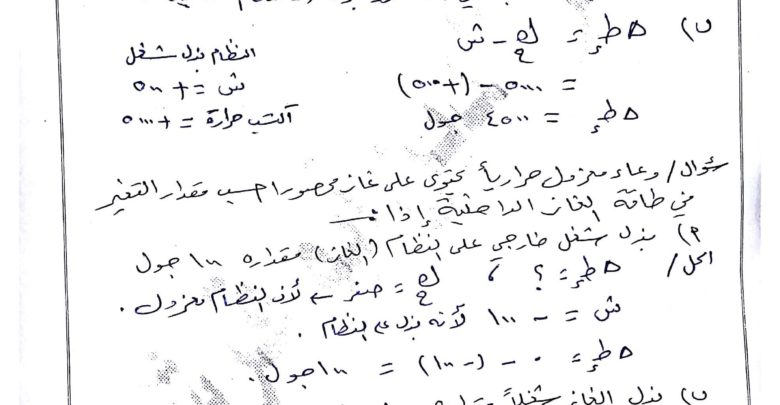 ب) Δ طد = كح - ش
النظام بذل شغل
= ٥٠٠٠ - (+٥٠٠)
ش = + ٥٠٠
Δ طد = ٤٥٠٠ جول
اكتسب حرارة = + ٥٠٠٠
سؤال/ وعاء معزول حرارياً يحتوي على غاز محصور احسب مقدار التغير
في طاقة الغاز الداخلية إذا :
أ) بذل شغل خارجي على النظام (الغاز) مقداره ١٠٠ جول
الحل/ Δ طد = ؟ ، كح = صفر ← لأن النظام معزول .
ش = - ١٠٠ لأنه بذل على النظام .
Δ طد = ٠ - (- ١٠٠) = ١٠٠ جول .
ب) بذل الغاز شغلاً